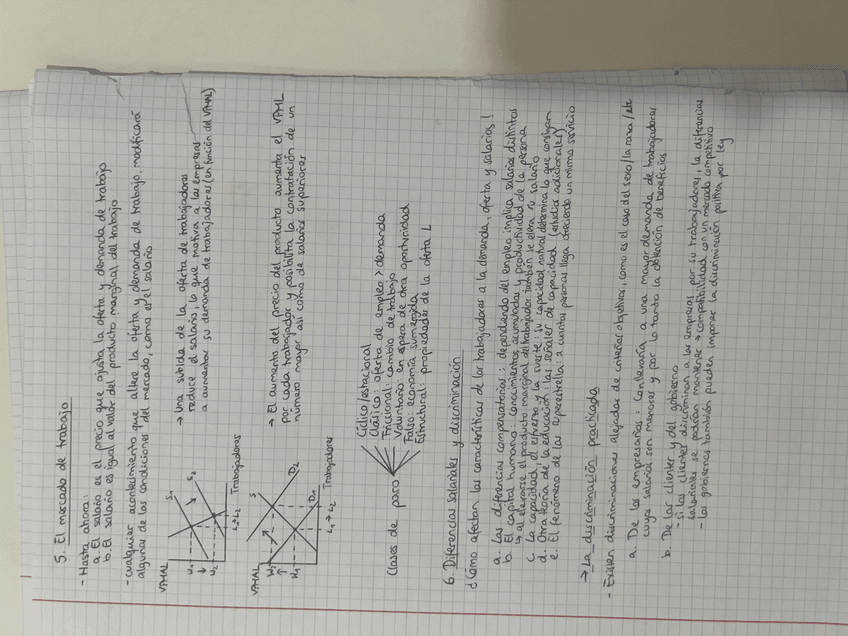 5. El mercado de trabajo
- Hasta ahora:
a. El salario es el precio que ajusta la oferta y demanda de trabajo
b. El salario es igual al valor del producto marginal del trabajo
- cualquier acontecimiento que altere la oferta y demanda de trabajo, modificará
algunas de las condiciones del mercado, como es el salario
VPMAL
S1
S2
W1
W2
L1→L2
Trabajadores
→ Una subida de la oferta de trabajadores
reduce el salario, lo que motiva a las empresas
a aumentar su demanda de trabajadores (en función del VPMAL)
VPMAL
S
D2
D1
W2
W1
L1→L2
Trabajadores
→ El aumento del precio del producto aumenta el VPML
por cada trabajador y posibilita la contratación de un
número mayor así como de salarios superiores
Clases de paro
Cíclico/estacional
Clásico: oferta de empleo > demanda
Friccional: cambio de trabajo
Voluntario: en espera de otra oportunidad
Falso: economía sumergida
Estructural: propiedades de la oferta L
6. Diferencias salariales y discriminación
¿Cómo afectan las características de los trabajadores a la demanda, oferta y salarios!
a. Las diferencias compensatorias: dependiendo del empleo implica salarios distintos
b. El capital humano: conocimientos acumulados y productividad de la persona
↳ al elevarse el producto marginal del trabajador también se eleva su salario
c. La capacidad, el esfuerzo y la suerte: su capacidad natural determina lo que consigan
d. Otra teoría de la educación: las señales de capacidad (estudios adicionales)
e. El fenómeno de las superestrella: a cuantas personas llega ofreciendo un mismo servicio
→ La discriminación practicada
- Existen discriminaciones alejadas de criterios objetivos, como es el caso del sexo/la raza/etc
a. De los empresarios: conllevaría a una mayor demanda de trabajadores
cuyos salarios son menores y por lo tanto la obtención de beneficios
b. De los clientes y del gobierno
- si los clientes discriminan a las empresas por su trabajadores, la diferencias
salariales se podrían mantener → compatibilidad con un mercado competitivo
- los gobiernos también pueden imponer la discriminación positiva por ley